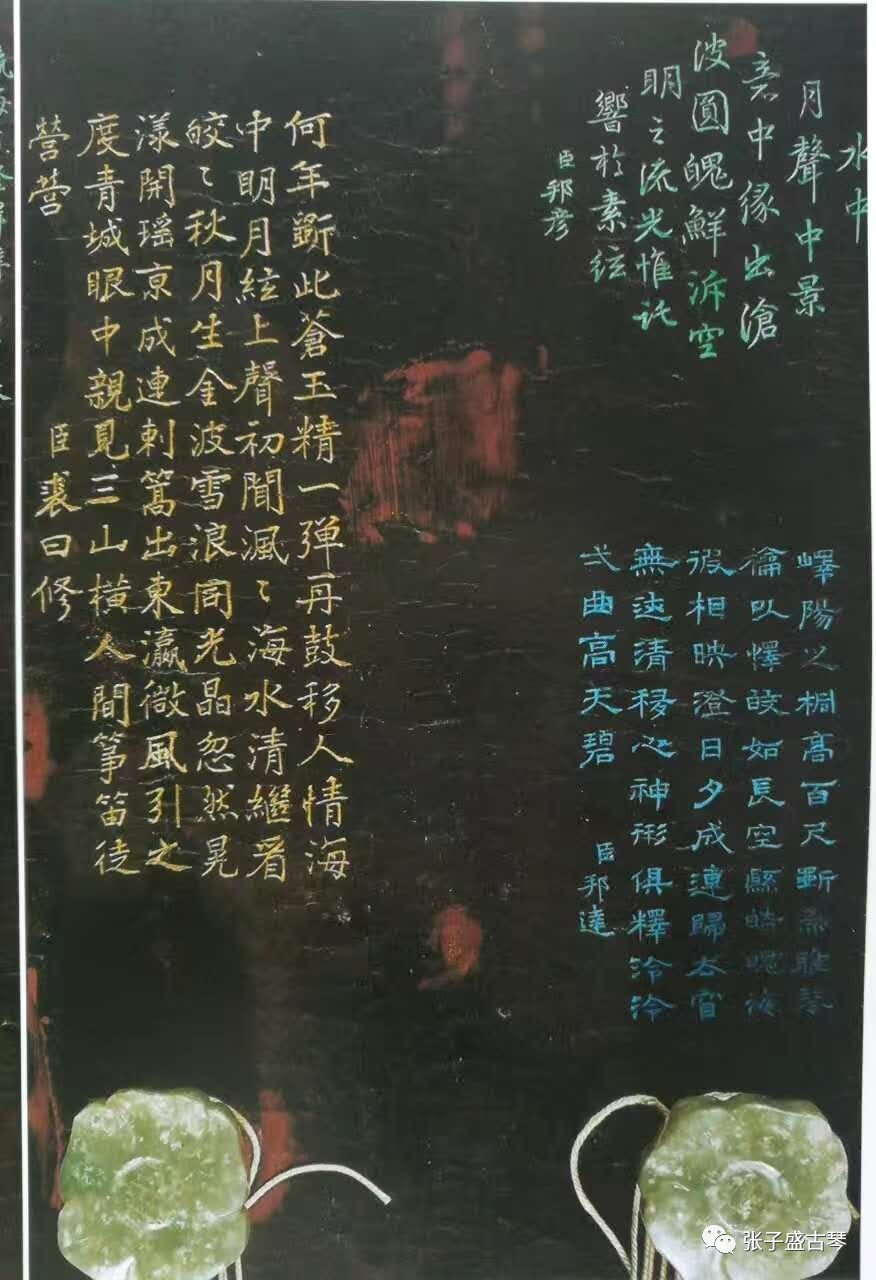 水中
月聲中景
意中緣出滄
波圓魄鮮泝空
明之流光惟託
響於素絃
臣邦彥
嶧陽之桐高百尺斲為雅琴
徽以懌皎如長空懸皓魄
彼相映澄日夕成連歸去窅
無迹清移心神形俱釋泠泠
弌曲高天碧
臣邦達
何年斲此蒼玉精一弹再鼓移人情海
中明月絃上聲初聞渢〻海水清繼看
皎〻秋月生金波雪浪同光晶忽然晃
漾開瑶京成連刺篙出東瀛微風引之
度青城眼中親見三山橫人間箏笛徒
營營
臣裘曰修
张子盛古琴